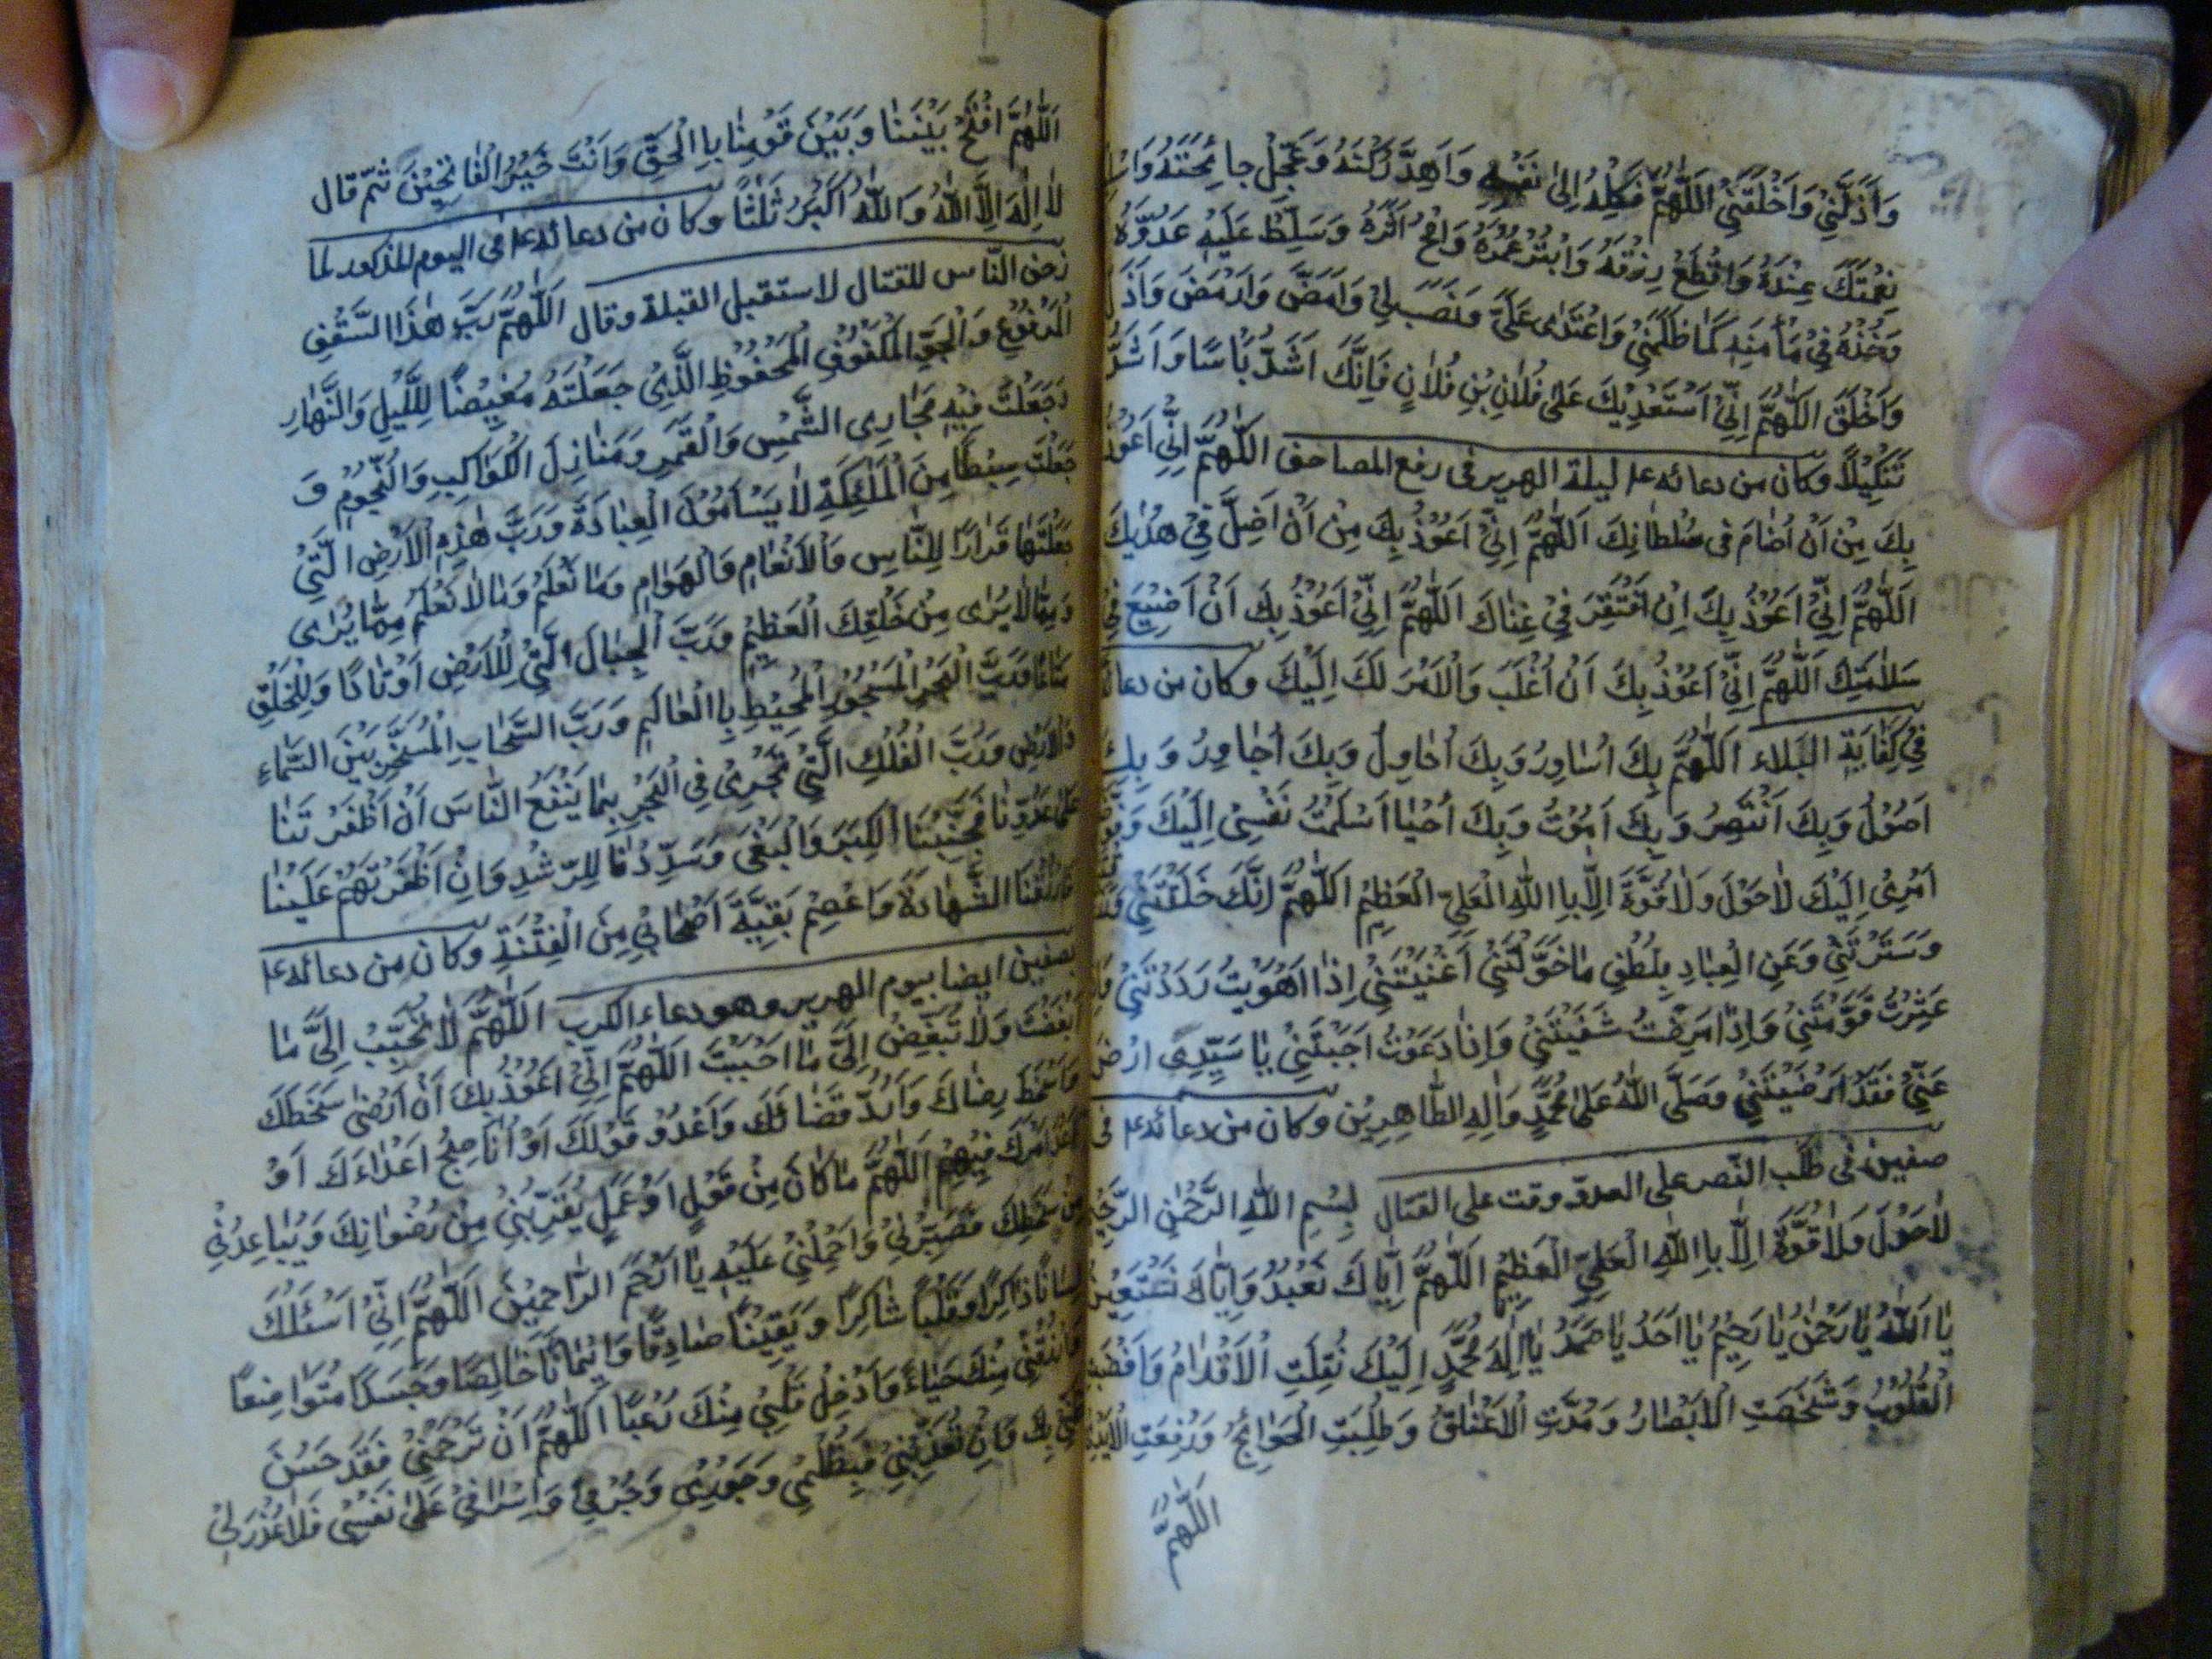 وَأَذَلَّنِي وَاَخْلَقَنِي اَللّٰهُمَّ فَكِلْهُ اِلىٰ نَفْسِهِ وَاَهِدَّ رُكْنَهُ وَعَجِّلْ جائِحَتَهُ
نِعْمَتَكَ عِنْدَهُ وَاقْطَعْ رِزْقَهُ وَابْتُرْ عُمْرَهُ وَامْحُ اَثَرَهُ وَسَلِّطْ عَلَيْهِ عَدُوَّهُ
وَخُذْهُ فِيْ مَأْمَنِهِ كَمٰا ظَلَمَنِيْ وَاعْتَدٰى عَلَيَّ وَنَصَبَ لِيْ وَاَمَضَّ وَاَرْمَضَ وَاَذَلَّ
وَاَخْلَقَ اَللّٰهُمَّ اِنِّيْ اَسْتَعْدِيْكَ عَلىٰ فُلاٰنِ بْنِ فُلاٰنٍ فَاِنَّكَ اَشَدُّ بَأْسًا وَاَشَدُّ
تَنْكِيْلًا وكان من دعائه ع‍ ليلة الهرير فى رفع المصاحف اَللّٰهُمَّ اِنِّي اَعُوْذُ
بِكَ مِنْ اَنْ اُضٰامَ فى سُلْطٰانِكَ اَللّٰهُمَّ اِنِّيْ اَعُوْذُ بِكَ مِنْ اَنْ اَضِلَّ فِيْ هُدٰيكَ
اَللّٰهُمَّ اِنِّيْ اَعُوْذُ بِكَ اِنْ اَفْتَقِرَ فِيْ غِنٰاكَ اَللّٰهُمَّ اِنِّيْ اَعُوْذُ بِكَ اَنْ اَضِيْعَ فِيْ
سَلاٰمَتِكَ اَللّٰهُمَّ اِنِّيْ اَعُوْذُ بِكَ اَنْ اُغْلَبَ وَالْاَمْرُ لَكَ اِلَيْكَ وكان من دعائه
فِيْ كِفٰايَةِ البَلاء اَللّٰهُمَّ بِكَ اُسٰاوِرُ وَبِكَ اُحٰاوِلُ وَبِكَ اُجٰاوِرُ وَبِكَ
اَصُوْلُ وَبِكَ اَنْتَصِرُ وَبِكَ اَمُوْتُ وَبِكَ اَحْيٰا اَسْلَمْتُ نَفْسِىْ اِلَيْكَ
اَمْرِىْ اِلَيْكَ لاٰحَوْلَ وَلاٰ قُوَّةَ اِلاَّ بِاللّٰهِ الْعَلِيِّ الْعَظِيْمِ اَللّٰهُمَّ اِنَّكَ خَلَقْتَنِيْ
وَسَتَرْتَنِيْ وَعَنِ الْعِبٰادِ بِلُطْفِ مٰا خَوَّلْتَنِيْ اَغْنَيْتَنِيْ اِذٰا اَهْوَيْتُ رَدَدْتَنِيْ
عَثِرْتُ قَوَّمْتَنِيْ وَاِذٰا مَرِضْتُ شَفَيْتَنِيْ وَاِذٰا دَعَوْتُ اَجَبْتَنِيْ يٰا سَيِّدِى ارْضَ
عَنِّيْ فَقَدْ اَرْضَيْتَنِيْ وَصَلَّى اللّٰهُ عَلىٰ مُحَمَّدٍ وَاٰلِهِ الطّٰاهِرِيْن وكان من دعائه ع‍ فى
صفين فى طلب النّصر على العدوّ وقت على القتال بِسْمِ اللّٰهِ الرَّحْمٰنِ الرَّحِيْمِ
لاٰحَوْلَ وَلاٰ قُوَّةَ اِلاّٰ بِاللّٰهِ الْعَلِيِّ الْعَظِيْمِ اَللّٰهُمَّ اِيّٰاكَ نَعْبُدُ وَاِيّٰاكَ نَسْتَعِيْنُ
يٰا اَللّٰهُ يٰا رَحْمٰنُ يٰا رَحِيْمُ يٰا اَحَدُ يٰا صَمَدُ يٰا اِلٰهَ مُحَمَّدٍ اِلَيْكَ نُقِلَتِ الْاَقْدٰامُ وَاَفْضَتِ
الْقُلُوْبُ وَشَخَصَتِ الْاَبْصٰارُ وَمُدَّتِ الْاَعْنٰاقُ وَطُلِبَتِ الْحَوٰائِجُ وَرُفِعَتِ الْاَيْدِ
اَللّٰهُمَّ
اَللّٰهُمَّ افْتَحْ بَيْنَنٰا وَبَيْنَ قَوْمِنٰا بِالْحَقِّ وَاَنْتَ خَيْرُ الْفٰاتِحِيْنَ ثمّ قال
لاٰ اِلٰهَ اِلاَّ اللّٰهُ وَاللّٰهُ اَكْبَرُ ثَلٰثًا وكان من دعائه ع‍ فى اليوم المذكور لما
زحف النّاس للقتال لاستقبل القبلة وقال اَللّٰهُمَّ رَبَّ هٰذَا السَّقْفِ
الْمَرْفُوْعِ وَالْجَوِّ الْمَكْفُوْفِ الْمَحْفُوْظِ الَّذِيْ جَعَلْتَهُ مَغِيْضًا لِلَّيْلِ وَالنَّهٰارِ
وَجَعَلْتَ فِيْهِ مَجٰارِىَ الشَّمْسِ وَالْقَمَرِ وَمَنٰازِلَ الْكَوٰاكِبِ وَالنُّجُوْمِ وَ
جَعَلْتَ سِبْطًا مِنَ الْمَلٰئِكَةِ لاٰ يَسْأَمُوْنَ الْعِبٰادَةَ وَرَبَّ هٰذِهِ الْاَرْضِ الَّتِيْ
جَعَلْتَهٰا قَرٰارًا لِلنّٰاسِ وَالْاَنْعٰامِ وَالْهَوٰامِ وَمٰا نَعْلَمُ وَمٰا لاٰ نَعْلَمُ مِمّٰا يُرٰى
وَمِمّٰا لاٰ يُرٰى مِنْ خَلْقِكَ الْعَظِيْمِ وَرَبَّ الْجِبٰالِ الَّتِيْ لِلْاَرْضِ اَوْتٰادًا وَلِلْخَلْقِ
مَتٰاعًا وَرَبَّ الْبَحْرِ الْمَسْجُوْرِ الْمُحِيْطِ بِالْعٰالَمِ وَرَبَّ السَّحٰابِ الْمُسَخَّرِ بَيْنَ السَّمٰاءِ
وَالْاَرْضِ وَرَبَّ الْفُلْكِ الَّتِيْ تَجْرِىْ فِى الْبَحْرِ بِمٰا يَنْفَعُ النّٰاسَ اَنْ اَظْفَرْتَنٰا
عَلىٰ عَدُوِّنٰا فَجَنِّبْنَا الْكِبَرَ وَالْبَغْىَ وَسَدِّدْنٰا لِلرُّشْدِ وَاِنْ اَظْفَرْتَهُمْ عَلَيْنٰا
فَارْزُقْنَا الشَّهٰادَةَ وَاعْصِمْ بَقِيَّةَ اَصْحٰابِيْ مِنَ الْفِتْنَةِ وكان من دعائه ع‍
بصفين ايضا بيوم الهرير وهو دعاء الكرب اَللّٰهُمَّ لاٰ تُحَبِّبْ اِلَيَّ مٰا
اَبْغَضْتَ وَلاٰ تُبَغِّضْ اِلَيَّ مٰا اَحْبَبْتَ اَللّٰهُمَّ اِنِّيْ اَعُوْذُ بِكَ اَنْ اَرْضٰى سَخَطَكَ
وَاَسْخَطَ رِضٰاكَ وَاَرُدَّ قَضٰائَكَ وَاَعْدُوَ قَوْلَكَ اَوْ اُنٰاصِحَ اَعْدٰاءَكَ اَوْ
اَعْدُ اَمْرَكَ فِيْهِمْ اَللّٰهُمَّ مٰا كٰانَ مِنْ قَوْلٍ اَوْ عَمَلٍ يُقَرِّبُنِيْ مِنْ رُضْوٰانِكَ وَيُبٰاعِدُنِيْ
مِنْ سَخَطِكَ فَصَبِّرْنِيْ وَاحْمِلْنِيْ عَلَيْهِ يٰا اَرْحَمَ الرّٰاحِمِيْنَ اَللّٰهُمَّ اِنِّيْ اَسْئَلُكَ
لِسٰانًا ذٰاكِرًا وَقَلْبًا شٰاكِرًا وَيَقِيْنًا صٰادِقًا وَاِيْمٰانًا خٰالِصًا وَجَسَدًا مُتَوٰاضِعًا
وَارْزُقْنِيْ مِنْكَ حَيٰاءً وَاَدْخِلْ قَلْبِيْ مِنْكَ رُعْبًا اَللّٰهُمَّ اَنْ تَرْحَمْنِيْ فَقَدْ حَسُنَ
ظَنِّيْ بِكَ وَاِنْ تُعَذِّبْنِيْ فَبِظُلْمِيْ وَجَوْرِىْ وَجُرْمِيْ وَاِسْرٰافِيْ عَلىٰ نَفْسِيْ فَلاٰ عُذْرَ لِيْ